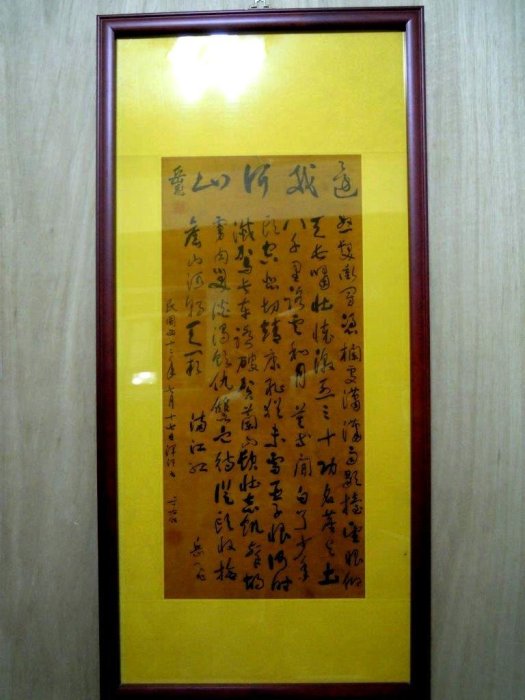 還我河山
岳飛
怒髮衝冠憑欄處瀟瀟雨歇擡望眼仰
天長嘯壯懷激烈三十功名塵與土
八千里路雲和月莫等閒白了少年
頭空悲切靖康恥猶未雪臣子恨何時
滅駕長車踏破賀蘭山缺壯志飢餐胡
虜肉笑談渴飲仇讐血待從頭收拾
舊山河朝天闕 滿江紅 岳飛
民國四十二年 月十七日